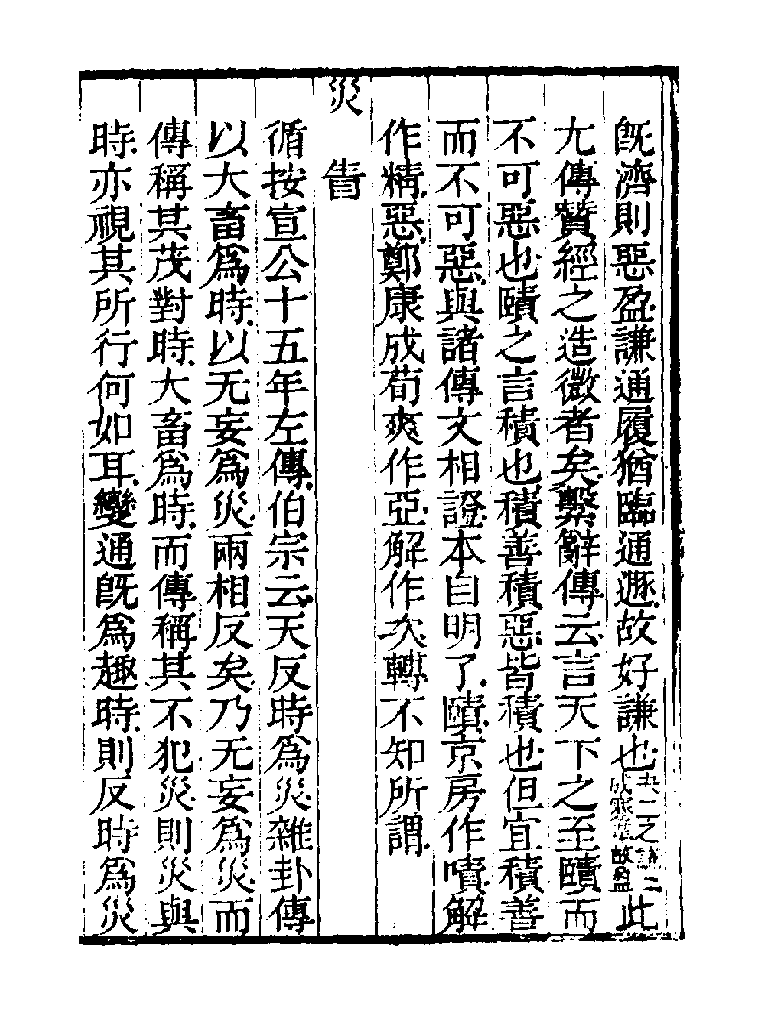 既濟則惡盈謙通履猶臨通遯故好謙也夬二之謙二成故盈此
尤傳贊經之造微者矣繫辭傳云言天下之至賾而
不可惡也賾之言積也積善積惡皆積也但宜積善
而不可惡與諸傳文相證本自明了賾京房作嘖解
作精惡鄭康成荀爽作亞解作次轉不知所謂
災眚
循按宣公十五年左傳伯宗云天反時爲災雜卦傳
以大畜爲時以无妄爲災兩相反矣乃无妄爲災而
傳稱其茂對時大畜爲時而傳稱其不犯災則災與
時亦視其所行何如耳變通旣爲趣時則反時爲災